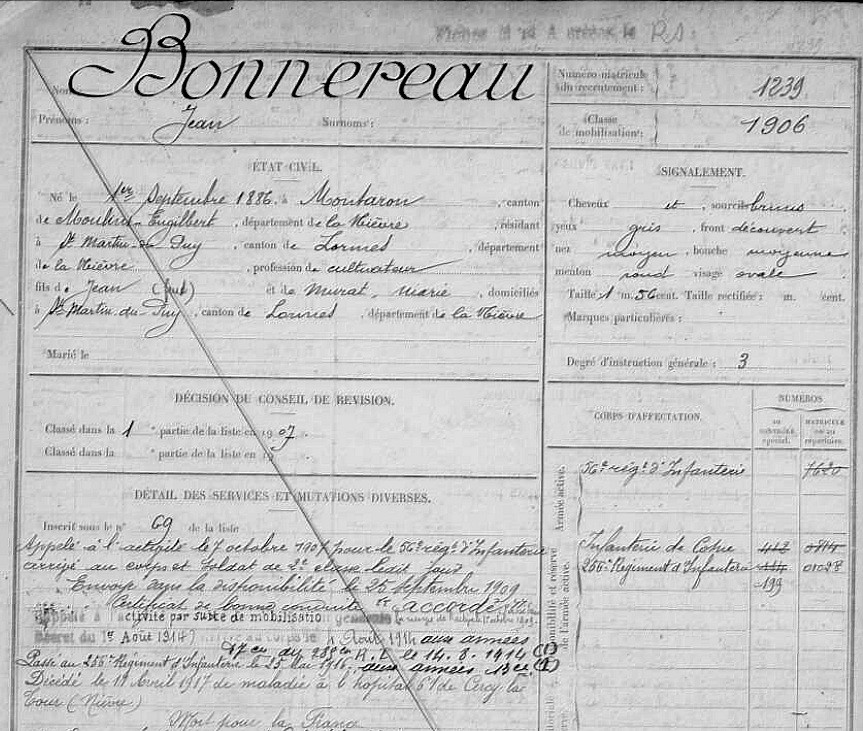 Bonnereau
Nom
Prénoms : Jean Surnoms :
Numéro matricule du recrutement : 1239
Classe de mobilisation : 1906
ÉTAT CIVIL.
Né le 1er Septembre 1886, à Montaron, canton
de Moulins-Engilbert, département de la Nièvre, résidant
à St Martin-du-Puy, canton de Lormes, département
de la Nièvre, profession de cultivateur
fils de Jean (feu) et de Murat, Marie, domiciliés
à St Martin-du-Puy, canton de Lormes, département de la Nièvre
Marié le
SIGNALEMENT.
Cheveux et sourcils bruns
yeux gris, front découvert
nez moyen, bouche moyenne
menton rond visage ovale
Taille 1 m. 56 cent. Taille rectifiée : m. cent.
Marques particulières :
Degré d'instruction générale : 3
DÉCISION DU CONSEIL DE REVISION.
Classé dans la 1 partie de la liste en 1907
Classé dans la partie de la liste en 19
DÉTAIL DES SERVICES ET MUTATIONS DIVERSES.
Inscrit sous le n° 69 de la liste
Appelé à l'activité le 7 octobre 1907 pour le 56e rég. d'Infanterie
arrivé au corps et Soldat de 2e classe ledit jour
Envoyé dans la disponibilité le 25 Septembre 1909
Certificat de bonne conduite accordé
Rappelé à l'activité par suite de mobilisation générale
Décret du 1er Août 1914) Août 1914 aux armées
14.8.1914 (1)
Passé au 256e Régiment d'Infanterie le 25 Mai 1916. aux armées
Décédé le 19 Avril 1917 de maladie à l'hôpital 61 de Cercy la
Tour (Nièvre)
Mort pour la France
CORPS D'AFFECTATION.
NUMÉROS
au contrôle spécial.
matricule ou au répertoire.
Armée active.
56e rég. d'Infanterie 7620
Disponibilité et réserve de l'armée active.
Infanterie de Cosne 412
256e Régiment d'Infanterie 01028
199